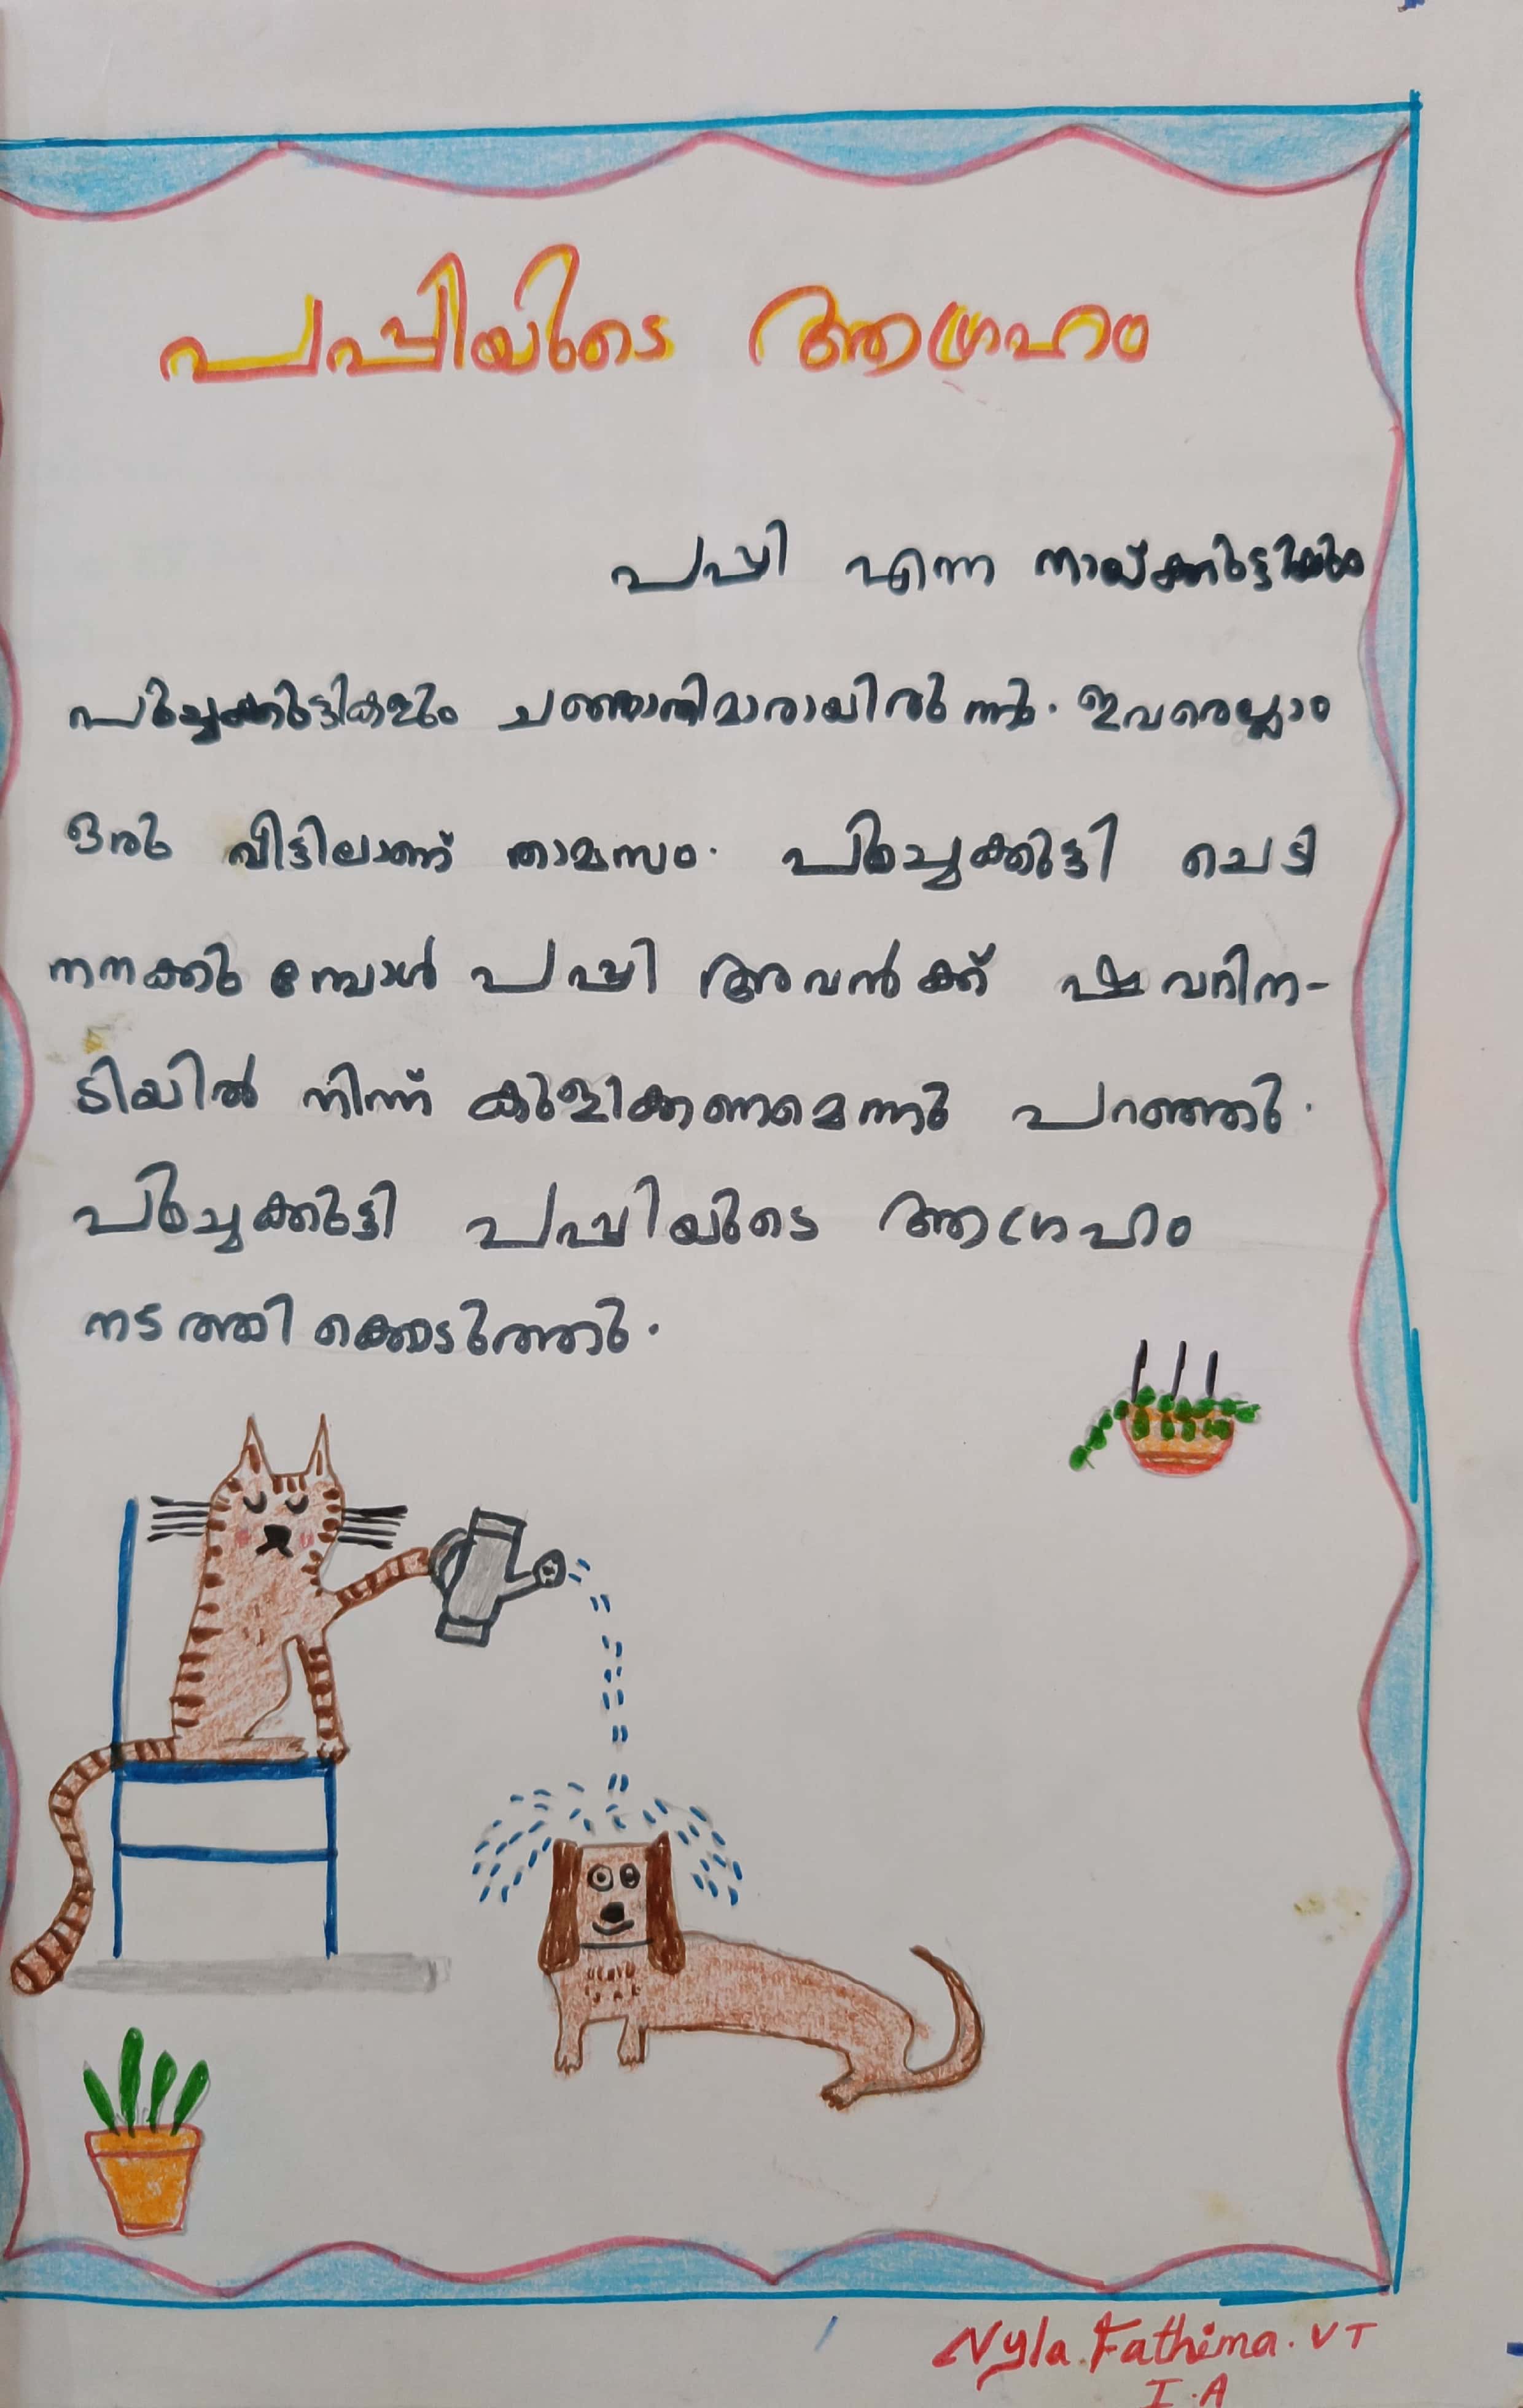 പപ്പിയുടെ ആഗ്രഹം
പപ്പി എന്ന നായ്ക്കുട്ടിയും
പൂച്ചക്കുട്ടികളും ചങ്ങാതിമാരായിരുന്നു. ഇവരെല്ലാം
ഒരു വീട്ടിലാണ് താമസം. പൂച്ചക്കുട്ടി ചെടി
നനക്കുമ്പോൾ പപ്പി അവൻക്ക് ഷവറിന-
ടിയിൽ നിന്ന് കുളിക്കണമെന്നു പറഞ്ഞു.
പൂച്ചക്കുട്ടി പപ്പിയുടെ ആഗ്രഹം
നടത്തിക്കൊടുത്തു.
Nyla.Fathima.VT
I.A